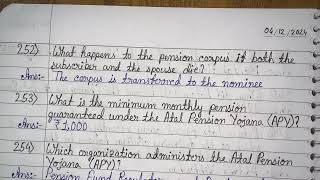 04/12/2024
252) What happens to the pension corpus if both the
subscriber and the spouse die?
Ans:- The corpus is transferred to the nominee
253) What is the minimum monthly pension
guaranteed under the Atal Pension Yojana (APY)?
Ans:- ₹1,000
254) Which organization administers the Atal Pension
Yojana (APY)?
Ans:- Pension Fund